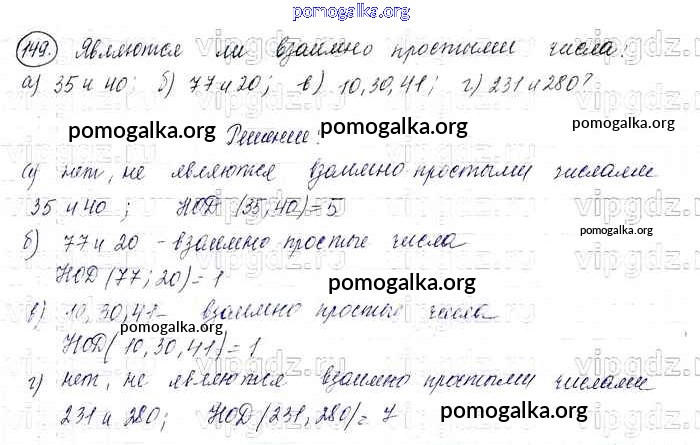 pomogalka.org
149. Являются ли взаимно простыми числа:
а) 35 и 40; б) 77 и 20; в) 10,30,41; г) 231 и 280?
pomogalka.org Решение: pomogalka.org pomogalka.org
а) нет, не являются взаимно простыми числами
35 и 40; НОД (35,40)=5
б) 77 и 20 - взаимно простые числа
pomogalka.org
НОД (77; 20)=1
pomogalka.org
в) 10,30,41- взаимно простые числа
pomogalka.org
НОД( 10,30,41)=1
pomogalka.org
г) нет, не являются взаимно простыми числами
231 и 280; НОД (231, 280)= 7
pomogalka.org